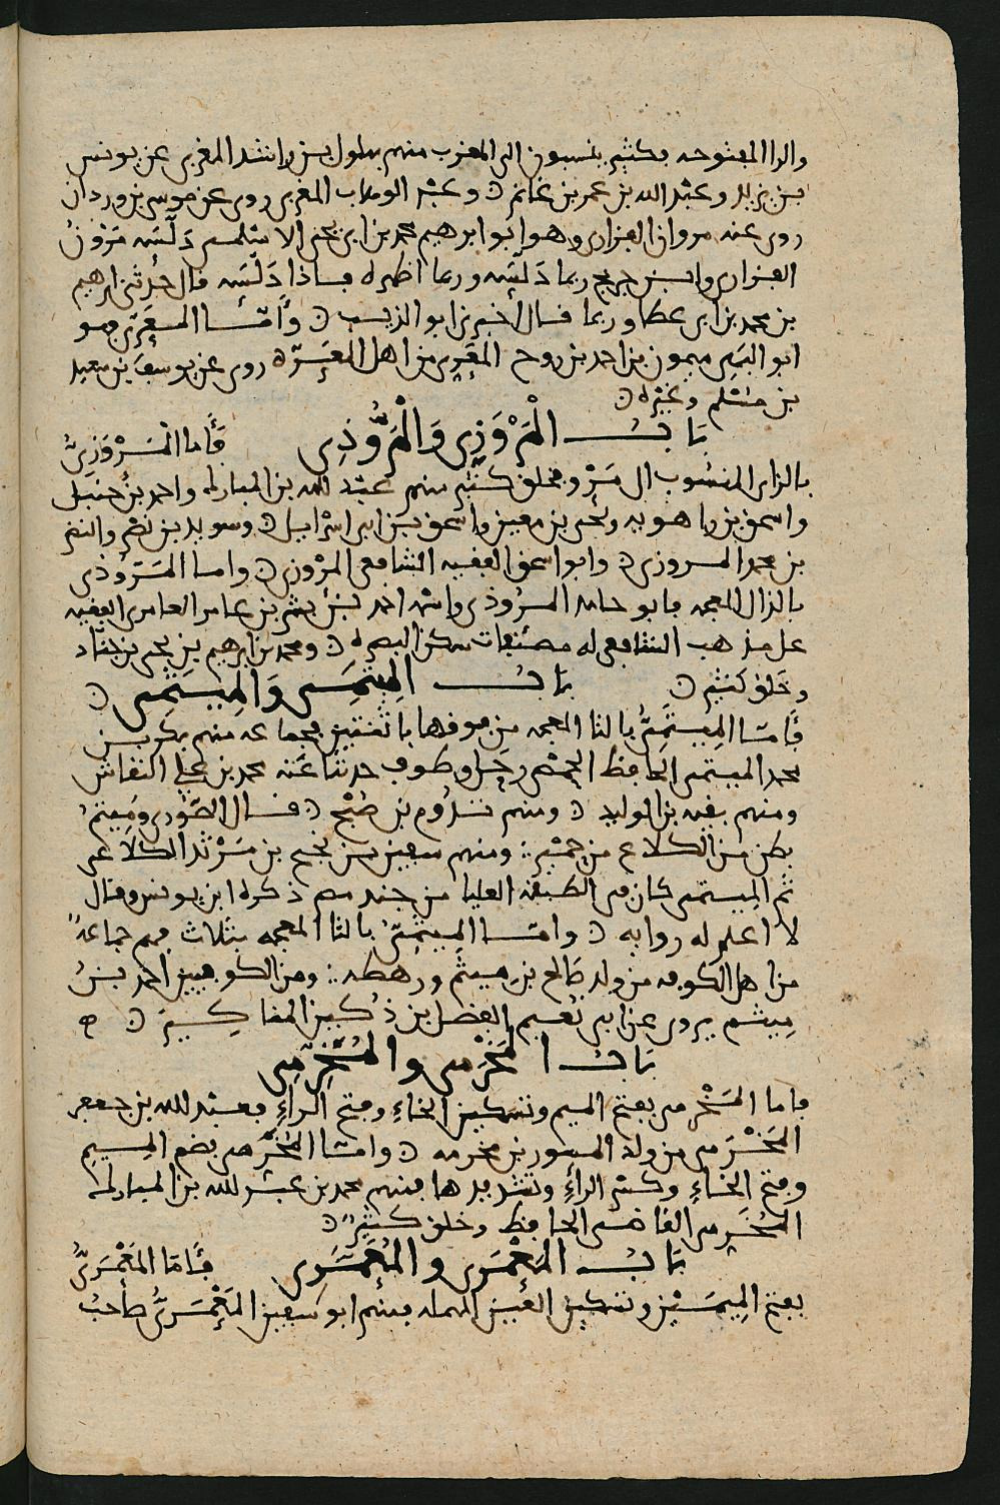 والرا المفتوحه فكثير ينسبون الى المغرب منهم بهلول بن راشد المغربى عن يونس
بن يزيد وعبد الله بن عمر بن غانم ۞ وعبد الوهاب المغربى روى عن موسى بن وردان
روى عنه مروان الفزارى وهو ابو ابرهيم محمد بن ابى يحيى الاسلمى دلّسه مروٰن
الفزارى وابن جريج ربما دلّسه وربما اظهره فاذا دلّسه قال حدثنى ابرهيم
بن محمد بن ابى عطا وربما قال اخبرنى ابو الذيب ۞ وأمّا المعَرىّ فهو
ابو ميمون بن احمد بن روح المعرى من اهل المعرّة روى عن يوسف بن سعيد
بن مسلم وغيره ۞
باب المَرْوَزِى وَالْمَرُّوذِى فأما المَرْوَزِىُّ
بالزاى المنسوب الى مَرْو فخلق كثير منهم عبد الله بن المبارك واحمد بن حنبل
واسحق بن راهويه ويحيى بن معين واسحق بن ابى اسرائيل ۞ وسويد بن نصر والنضر
بن محمد المروزى ۞ وابو اسحق الفقيه الشافعى المروزى ۞ واما المَرّوذى
بالذال المعجمه فابو حامد المرّوذى واسمه احمد بن بشر بن عامر العامرى الفقيه
على مذهب الشافعى له مصنفات سكن البصره ۞ ومحمد بن ابرهيم بن يحيى بن جنّاد
وخلق كثير ۞ باب المِيثَمِى وَالمِيتَمِى ۞
فأمّا المِيتَمىُّ بالتا المعجمه من فوقها باثنتين فجماعه منهم بكر بن
محمد الميتمى الحافظ الحمصى رحل وطوف حدثنا عنه محمد بن على النقاش
ومنهم بقيه بن الوليد ۞ ومنهم تدوم بن صُبْح ۞ قال الصّورى ومَيتَم
بطن من الكلاع من حمير ومنهم سفين بن نجيح بن مَرْثد الكلاعى
ثم الميتمى كان فى الطبقه العليا من جند مصر ذكره ابن يونس وقال
لا اعلم له روايه ۞ وامّا الميثمىّ بالثا المعجمه بثلاث فهم جماعةٌ
من اهل الكوفه من ولد صالح بن ميثم ورهطه ومن الكوفيين احمد بنُ
مِيثم يروى عن ابى نُعيم الفضل بن دُكين المناكير ۞
باب المَخْرَمى والمُخَرِّمى
فاما المَخْرمى بفتح الميم وتسكين الخاءِ وفتح الراءِ فعبد الله بن جعفر
المَخْرَمى من ولد المسور بن مخرمه ۞ وامّا المُخَرّمى بضم الميم
وفتح الخاءِ وكسر الراءِ وتشديدها فمنهم محمد بن عبد الله بن المبارك
المُخَرّمى القاضى الحافظ وخلق كثيرٌ ۞
باب المَعْمَرى والمُعَمَّرِى فأمّا المَعْمَرىُّ
بفتح المِيمَيْن وتسكين العين المهمله فمنهم ابو سفين المَعْمَرىُّ صاحبُ